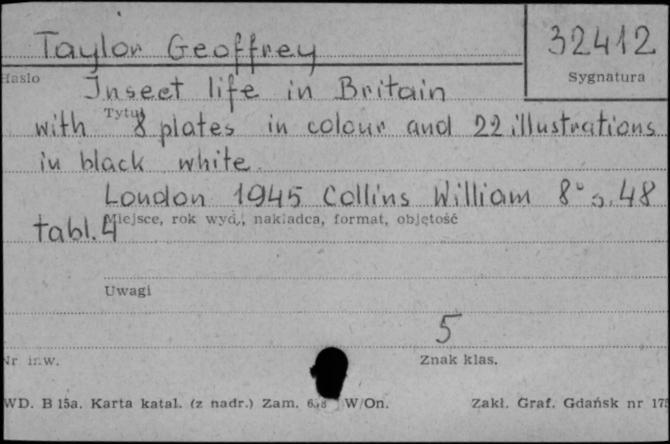 Taylor Geoffrey
32412
Hasło
Sygnatura
Insect life in Britain
Tytuł
with 8 plates in colour and 22 illustrations
in black white
London 1945 Collins William 8° s. 48
Miejsce, rok wyd., nakładca, format, objętość
tabl. 4
Uwagi
5
Nr inw.
Znak klas.
WD. B 15a. Karta katal. (z nadr.) Zam. W/On.
Zakł. Graf. Gdańsk nr